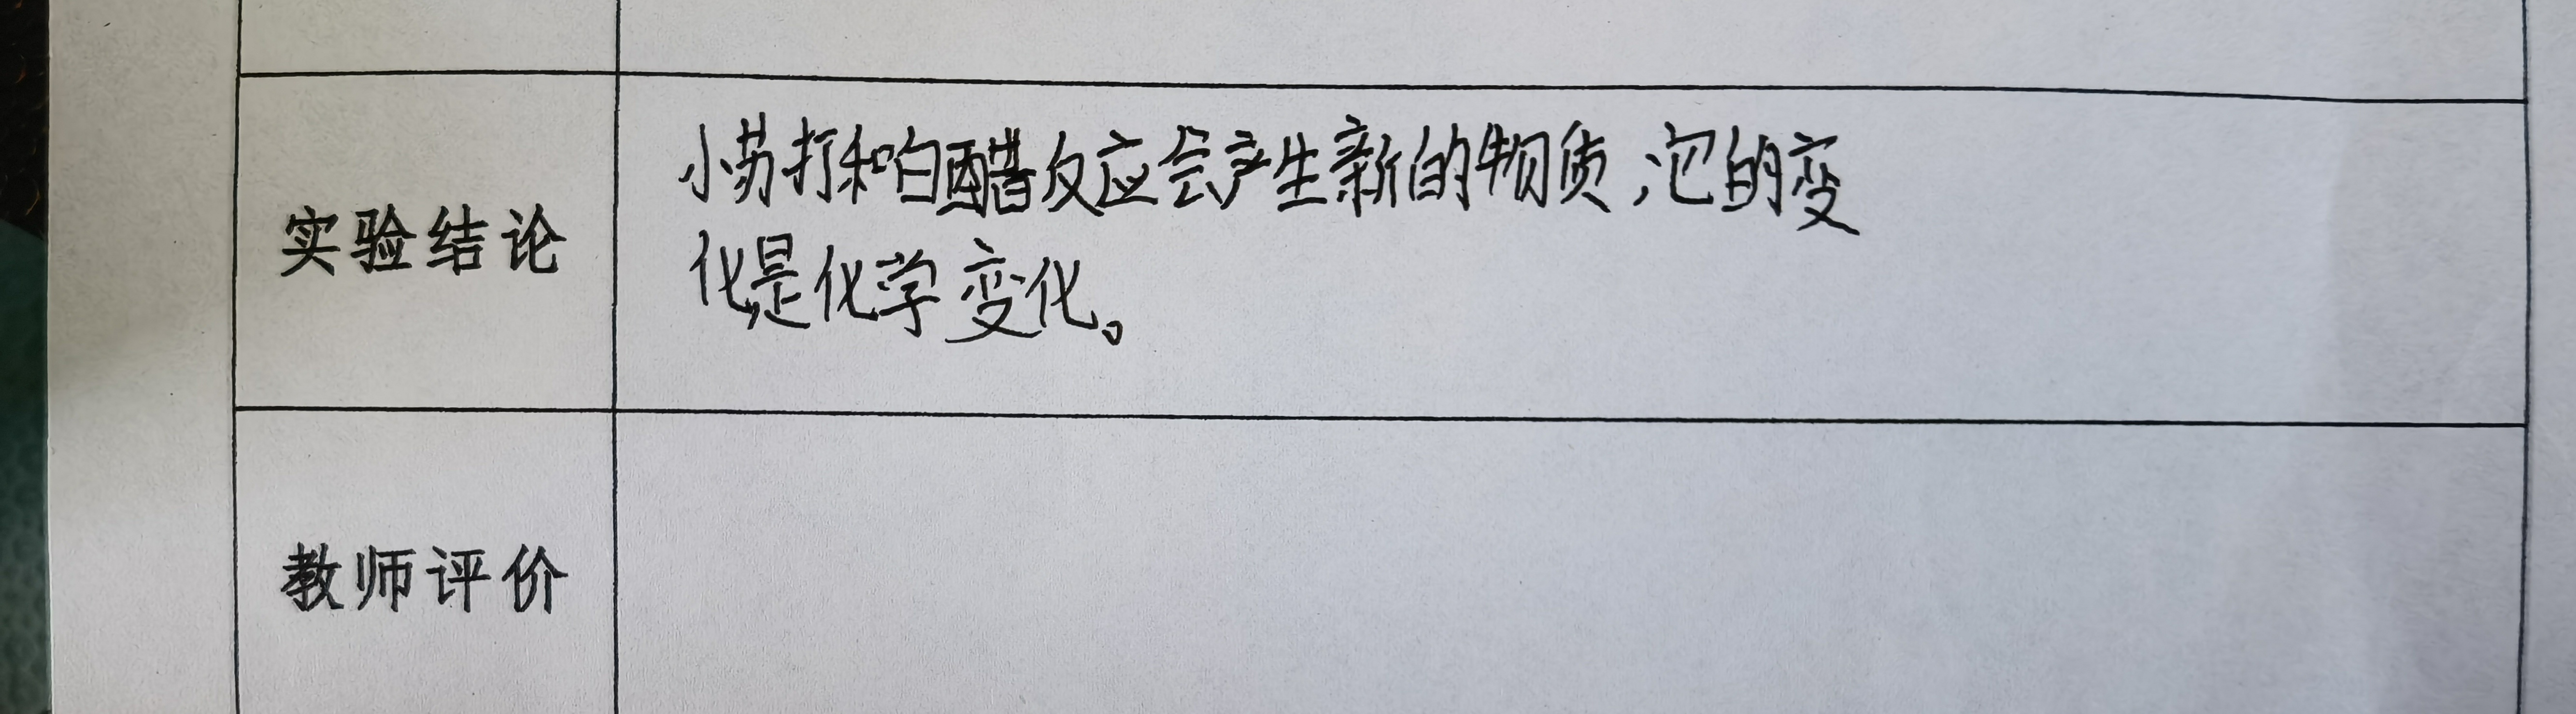 实验结论
小苏打和白醋反应会产生新的物质,它的变
化是化学变化。
教师评价